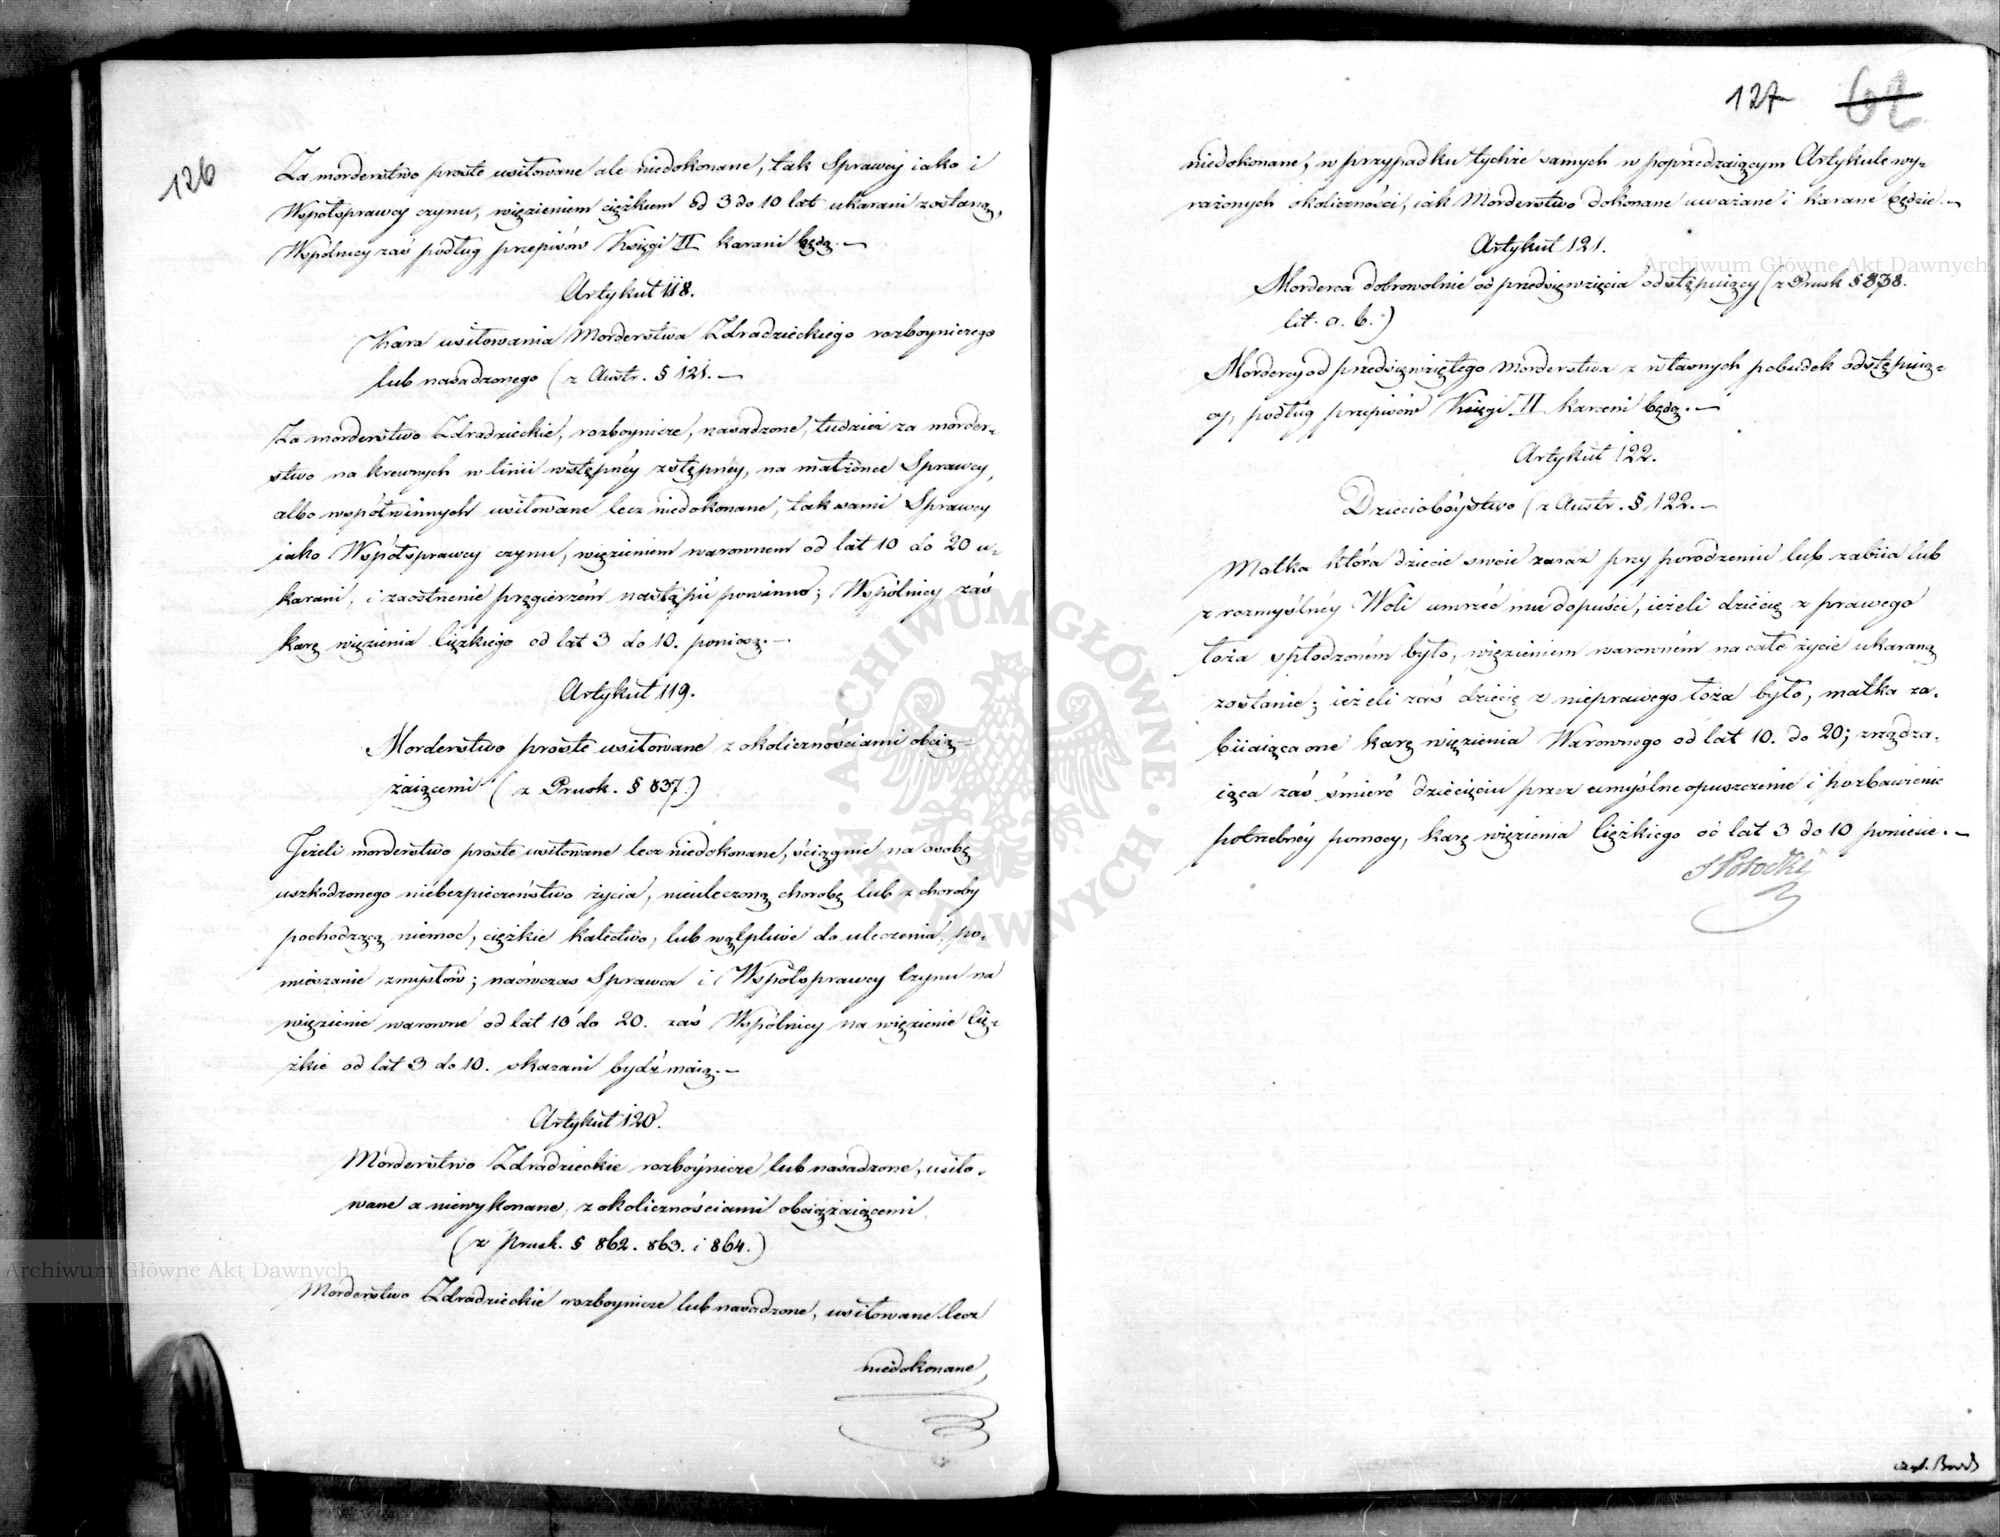 126
Za morderstwo proste usiłowane ale niedokonane, tak Sprawcy iako i
Współsprawcy czynu, więzieniem ciężkiem od 3 do 10 lat ukarani zostaną,
Wspólnicy zaś podług przepisów Księgi II karani będą. —
Artykuł 118.
Kara usiłowania Morderstwa Zdradzieckiego rozboyniczego
lub nasadzonego (z Austr. § 121. —
Za morderstwo Zdradzieckie, rozboynicze, nasadzone, tudzież za morder-
stwo na krewnych w linii wstępnéy zstępnéy, na małżonce Sprawcy,
albo współwinnych usiłowane lecz niedokonane, tak sami Sprawcy
iako Współsprawcy czynu, więzieniem warownem od lat 10 do 20 u-
karani, i zaostrzenie pręgierzem nastąpić powinno; Wspólnicy zaś
karę więzienia Ciężkiego od lat 3 do 10. poniosą. —
Artykuł 119.
Morderstwo proste usiłowane z okolicznościami obcią-
żaiącemi (z Prusk. § 837.)
Jeżeli morderstwo proste usiłowane lecz niedokonane, ściągnie na osobę
uszkodzonego niebezpieczeństwo życia, nieuleczoną chorobę lub z choroby
pochodzącą niemoc, ciężkie kalectwo, lub wątpliwe do uleczenia, po-
mieszanie zmysłów; naówczas Sprawca i Współsprawcy Czynu na
więzienie warowne od lat 10 do 20. zaś Wspólnicy na więzienie Cię-
żkie od lat 3 do 10. skazani bydź maią. —
Artykuł 120.
Morderstwo Zdradzieckie rozbóynicze lub nasadzone, usiło-
wane a niewykonane, z okolicznościami obciążaiącemi
(z Prusk. § 862. 863. i 864.)
Morderstwo Zdradzieckie rozboynicze lub nasadzone, usiłowane lecz
niedokonane,
127 62
niedokonane, w przypadku tychże samych w poprzedzaiącym Artykule wy-
rażonych okoliczności, iak Morderstwo dokonane uważane i karane będzie. —
Artykuł 121.
Morderca dobrowolnie od przedsięwzięcia odstępuiący (z Prusk § 838.
lit. a. b.)
Mordercy od przedsięwziętego morderstwa z własnych pobudek odstępuią-
cy, podług przepisów Księgi II karani będą. —
Artykuł 122.
Dzieciobóystwo (z Austr. § 122. —
Matka która dziecie swoie zaraz przy porodzeniu lub zabiia lub
z rozmyślnéy Woli umrzeć mu dopuści, ieżeli dziecię z prawego
łoża spłodzoném było, więzieniem warowném na całe życie ukaraną
zostanie; ieżeli zaś dziecię z nieprawego łoża było, matka za-
biiaiąca one karę więzienia Warownego od lat 10. do 20; zrządza-
iąca zaś śmierć dziecięciu przez umyślne opuszczenie i pozbawienie
potrzebnéy pomocy, karę więzienia Ciężkiego od lat 3 do 10 poniesie. —
S Potocki
Archiwum Główne Akt Dawnych
Archiwum Główne Akt Dawnych
ARCHIWUM GŁÓWNE AKT DAWNYCH